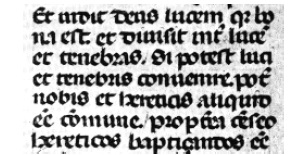 Et uidit deus lucem qr bo
na est et diuisit int luce
et tenebras. Si potest luci
et tenebris conuenire. pot
nobis et hereticis aliquid
ee comune. propterea censeo
hereticos baptizandos ee